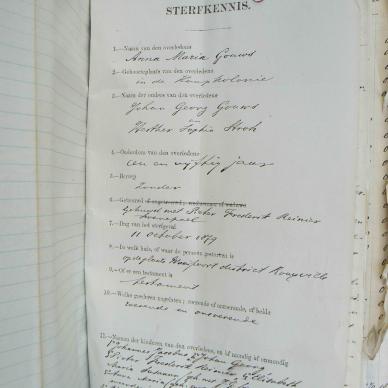 STERFKENNIS.
1.—Naam van den overledene
Anna Maria Gouws
2.—Geboorteplaats van den overledene
in de Kaapkolonie
3.—Naam der ouders van den overledene
Johan Georg Gouws
en
Hester Sophia Stroh
4.—Ouderdom van den overledene
een en vyftig jaar
5.—Beroep
Zonder
6.—Getrouwd of ongetrouwd; weduwnaar of weduwe
Gehuwd met Pieter Frederik Reinier
7.—Dag van het sterfgeval
11 October 1879
8.—In welk huis, of waar de persoon gestorven is
op de plaats district
9.—Of er een testament is
testament
10.—Welke goederen nagelaten; roerende of onroerende, of beide
roerende en onroerende
11.—Namen der kinderen van den overledene, en of mondig of onmondig
Johannes Jacobus Johan Georg
Pieter Frederik Reinier Elizabeth
Maria